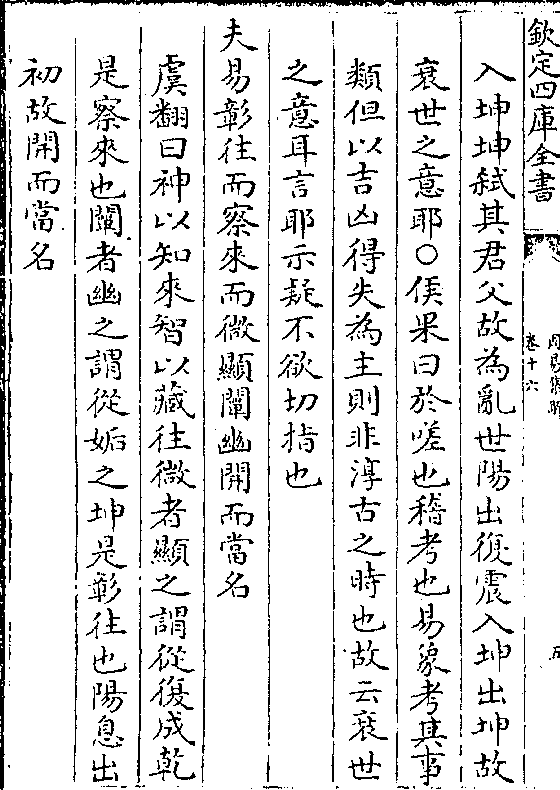 欽定四庫全書
卷十六
入坤坤弑其君父故為亂世陽出復震入坤出坤故
衰世之意耶○侯果曰於嗟也稽考也易象考其事
類但以吉凶得失為主則非淳古之時也故云衰世
之意耳言耶示疑不欲切指也
夫易彰往而察來而微顯闡幽開而當名
虞翻曰神以知來智以藏往微者顯之謂從復成乾
是察來也闡者幽之謂從姤之坤是彰往也陽息出
初故開而當名